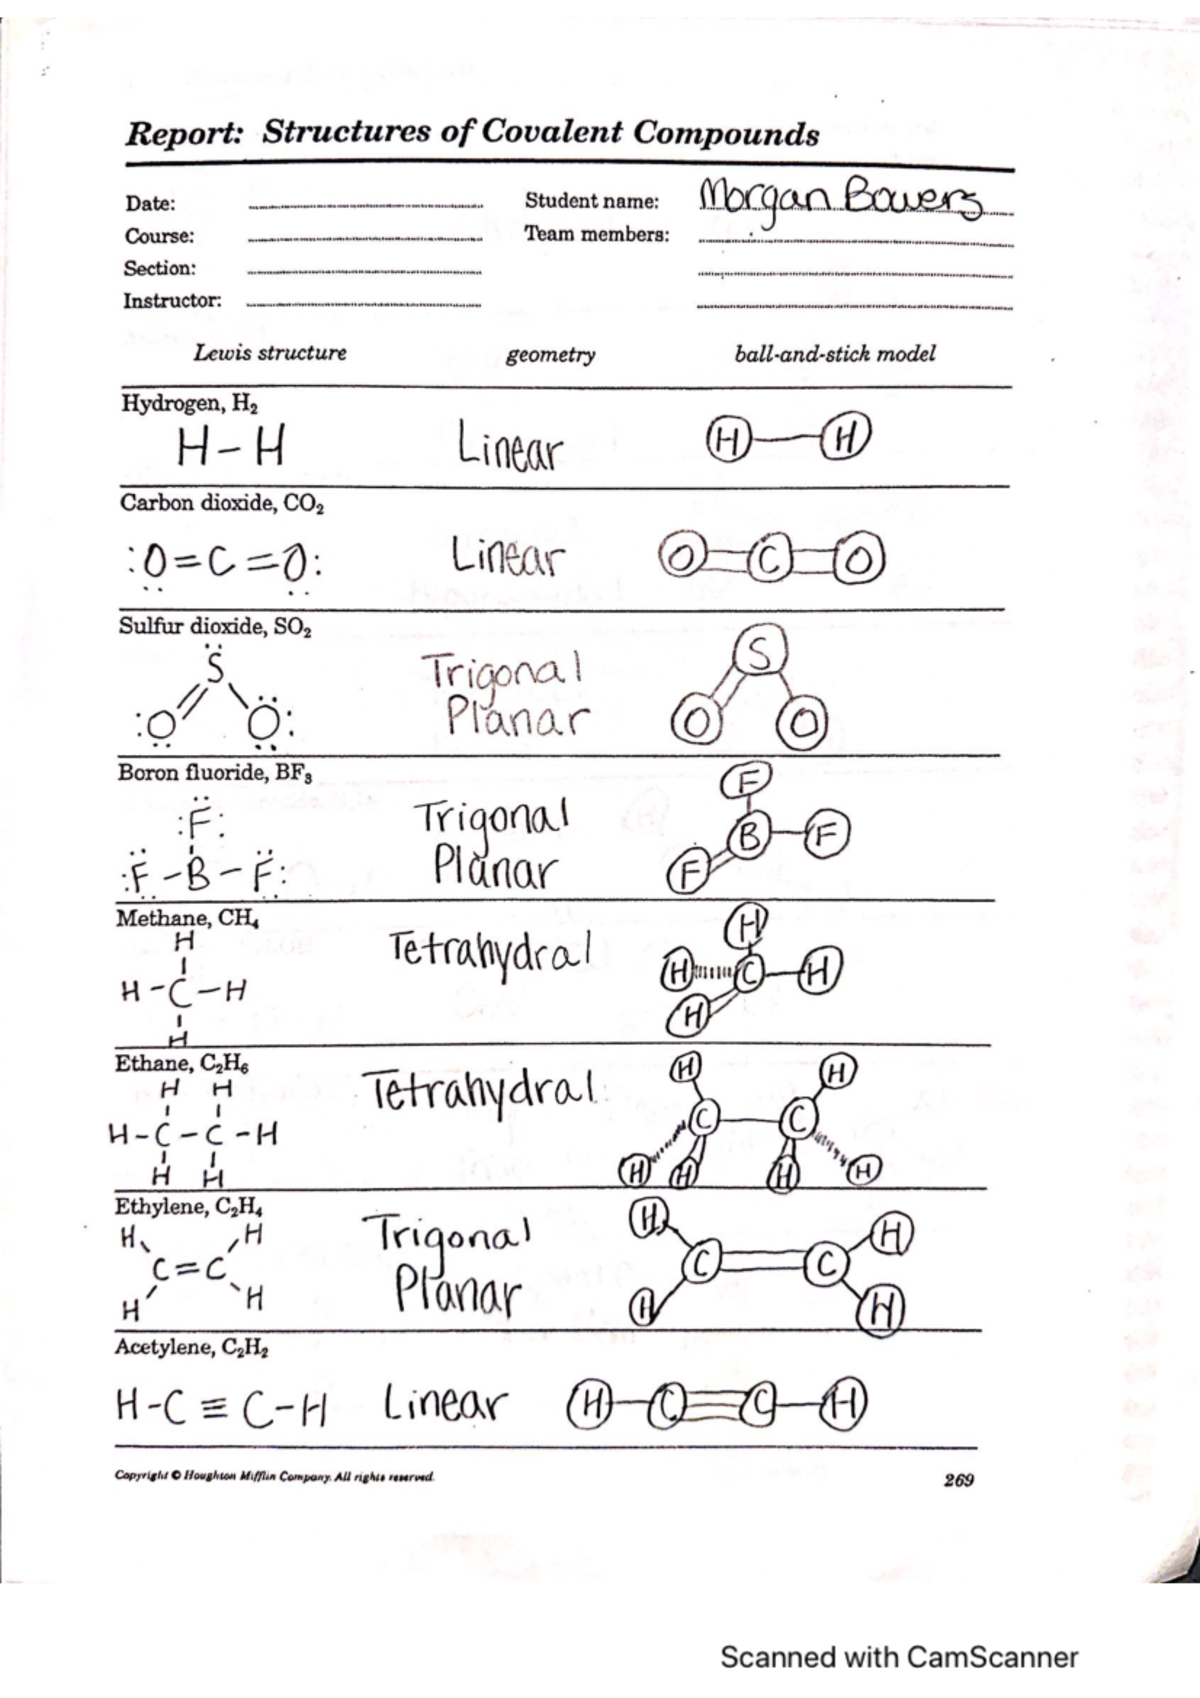 Report: Structures of Covalent Compounds
Date: Student name: Morgan Bowers
Course: Team members:
Section:
Instructor:
Lewis structure geometry ball-and-stick model
Hydrogen, H₂
H-H Linear H H
Carbon dioxide, CO₂
:O=C=O: Linear O C O
Sulfur dioxide, SO₂
S Trigonal S
:O O: Planar O O
Boron fluoride, BF₃
F
:F: Trigonal
B F
:F-B-F: Planar F
Methane, CH₄
H Tetrahydral H
H-C-H H C H
H H
Ethane, C₂H₆
H H Tetrahydral H H
H-C-C-H C C
H H H H H H
Ethylene, C₂H₄
H H Trigonal H H
C=C C C
H H Planar H H
Acetylene, C₂H₂
H-C≡C-H Linear H C C H
Copyright © Houghton Mifflin Company. All rights reserved.
269
Scanned with CamScanner